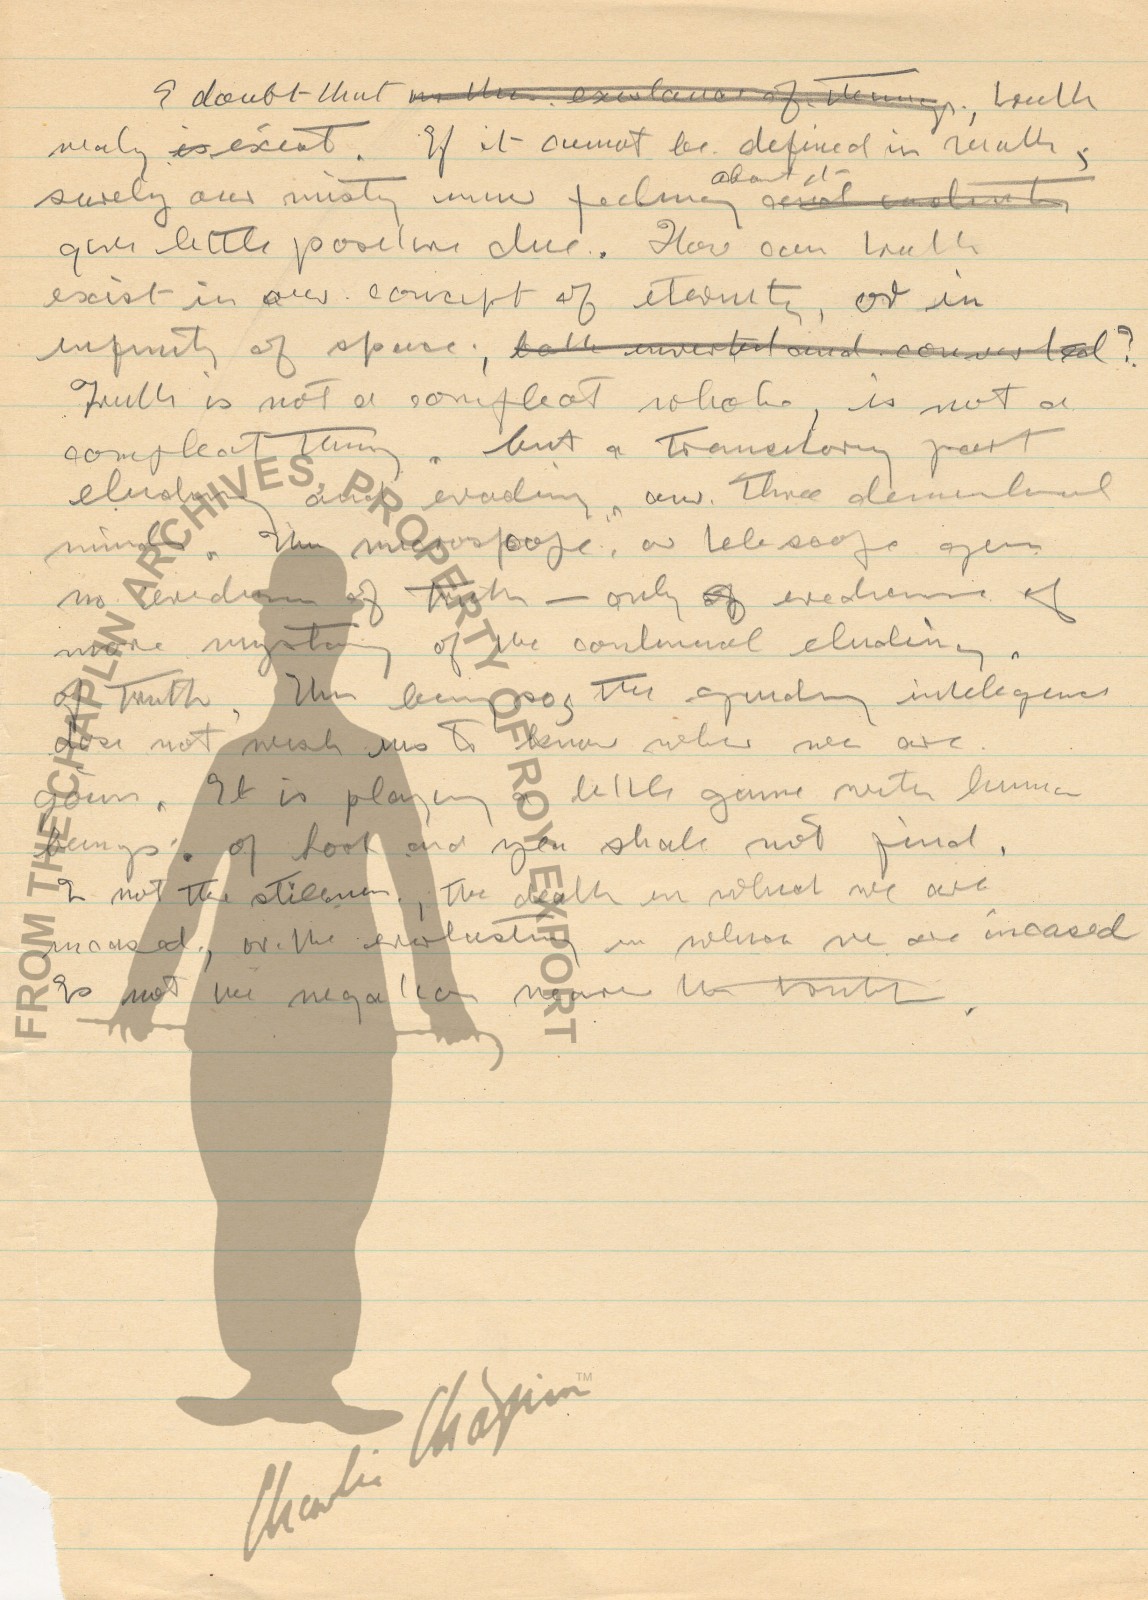 I doubt that in the existance of things, truth
realy is exist. If it cannot be defined in math,
about it
surely our misty inner feeling
give little positive clue. How can truth
exist in our concept of eternity, or in
infinity of space, both inverted and converted?
Truth is not a compleat whole, is not a
compleat thing. but a transitory part
eluding and evading our three dementional
minds. The microscope, or telescope gives
no evidence of truth — only of evedience of
more mystery of the continual eluding
of truth, This being so, the guiding intelegence
dose not wish us to know where we are
going. It is playing a little game with human
beings. of look and you shall not find.
Is not the stillness, the death in which we are
incased, or the everlasting in which we are incased
Is not the negation nearer the truth.
FROM THE CHAPLIN ARCHIVES, PROPERTY OF ROY EXPORT
Charlie Chaplin™